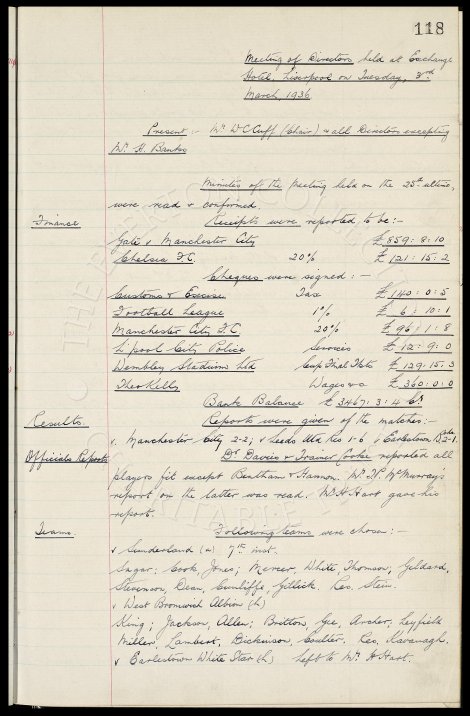 118
Meeting of Directors held at Exchange
Hotel, Liverpool on Tuesday, 3rd
March, 1936
Present :- Mr W C Cuff (Chair) & all Directors excepting
Mr H. Banks
Minutes of the Meeting held on the 25th ultimo,
were read & confirmed.
Finance Receipts were reported to be:-
Gate v Manchester City £859:8:10
Chelsea F.C. 20% £121:15:2
Cheques were signed:-
Customs & Excise Tax £140:0:5
Football League 1% £6:10:1
Manchester City F.C. 20% £96:1:8
L'pool City Police Services £12:9:0
Wembley Stadium Ltd Cup Final Tkts £129:15:3
Theo Kelly Wages &c £360:0:0
Bank Balance £3467:3:4
Results. Reports were given of the matches:-
v. Manchester City 2-2; v Leeds Utd Res 1-6 v Earlestown 2-1.
Officials Reports Dr Davies & Trainer Cooke reported all
players fit except Bentham & Hannon. Mr McMurray's
report on the latter was read. Mr H Hart gave his
report.
Teams. Following teams were chosen:-
v Sunderland (a) 7th inst.
Sagar; Cook, Jones; Mercer, White, Thomson; Geldard,
Stevenson, Dean, Cunliffe, Gillick. Res. Stein.
v West Bromwich Albion (h)
King; Jackson, Allen; Britton, Gee, Archer; Leyfield
Miller, Lambert, Dickinson, Coulter. Res. Kavanagh.
v Earlestown White Star (h) Left to Mr H Hart.